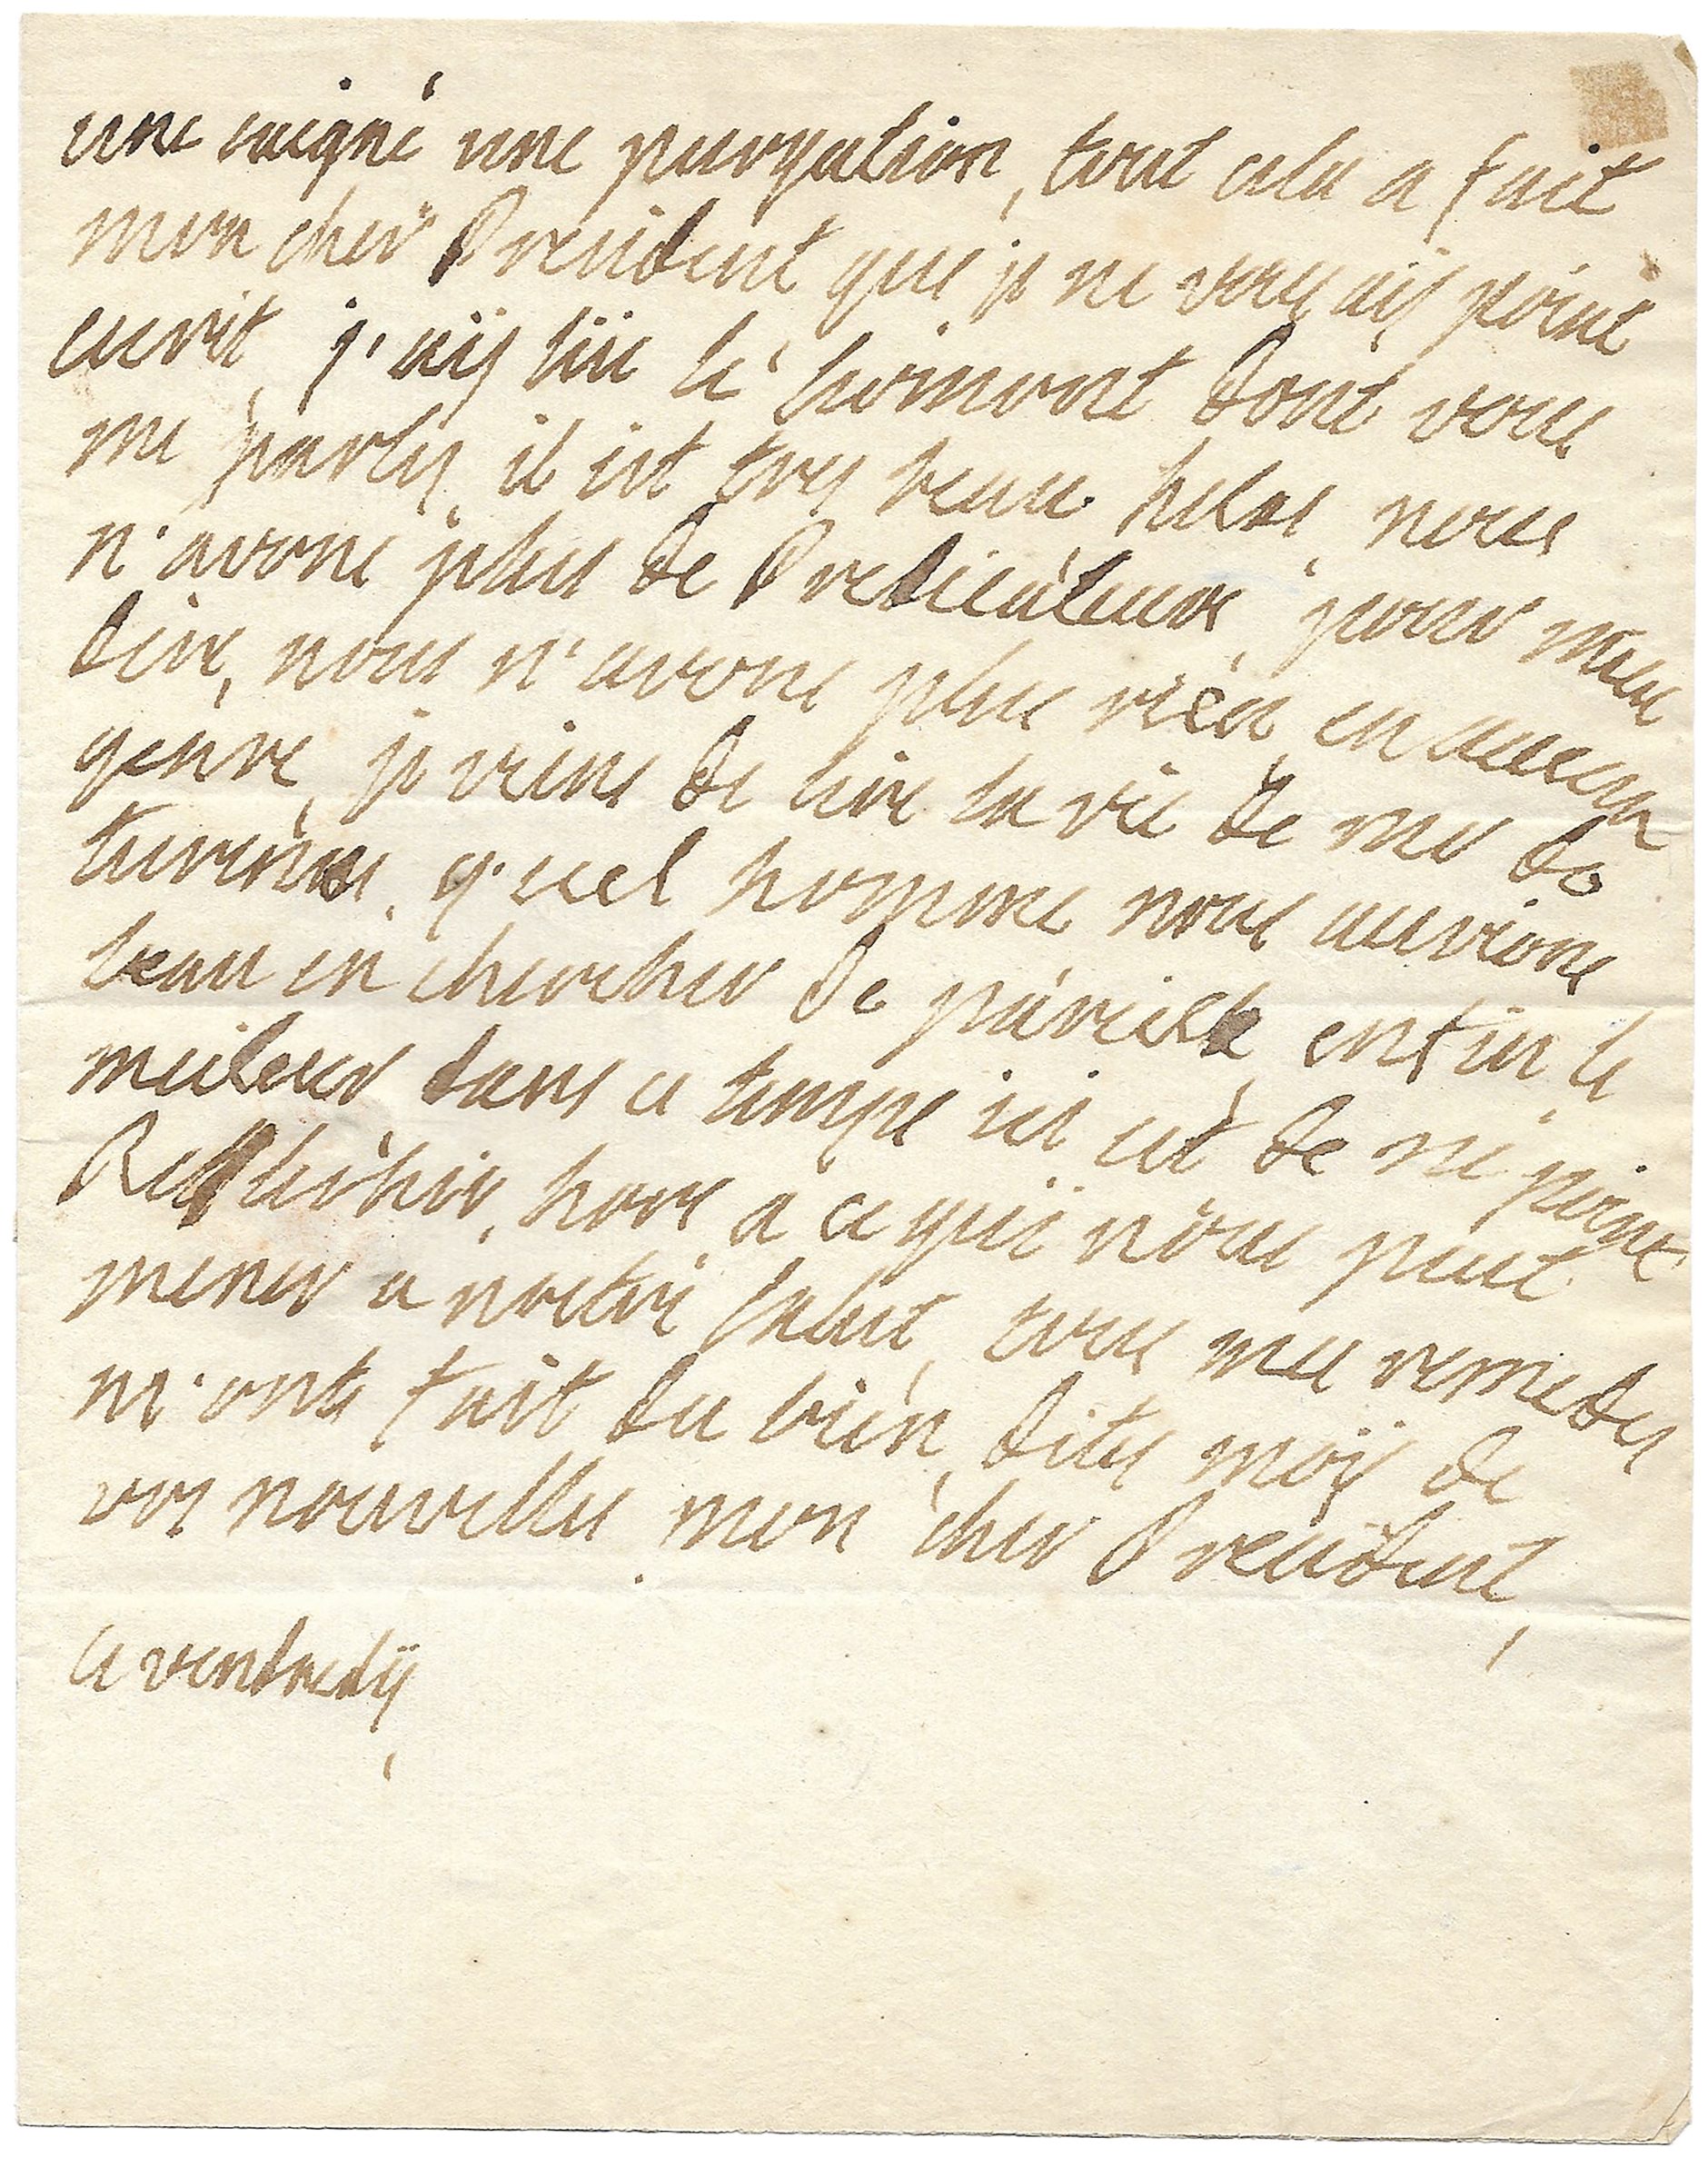 une saigné une purgation, tout cela a fait
mon cher President que je ne vous aÿ point
escrit, j'aÿ lüe le sermont dont vous
me parlés, il est tres beau helas, nous
n'avons plus de Predicateurs, pour mieux
dire, nous n'avons plus rien, en aucun
genre, je viens de lire la vie de mr de
turenne, quel homme nous aurions
beau en chercher de pareils, enfin, le
meileur dans ce temps ici est de ne point
Reflechir, hors, a ce qui nous peut
mener a nostre salut, tous mes remedes
m'onts fait du bien, dites moÿ de
vos nouvelles, mon cher President,
ce vendredÿ,